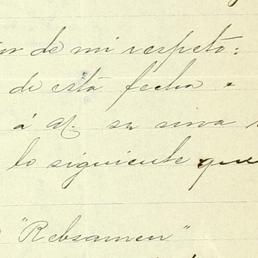 de mi respeto:
de esta fecha a
á U. se sirva
lo siguiente que
"Rebsamen"